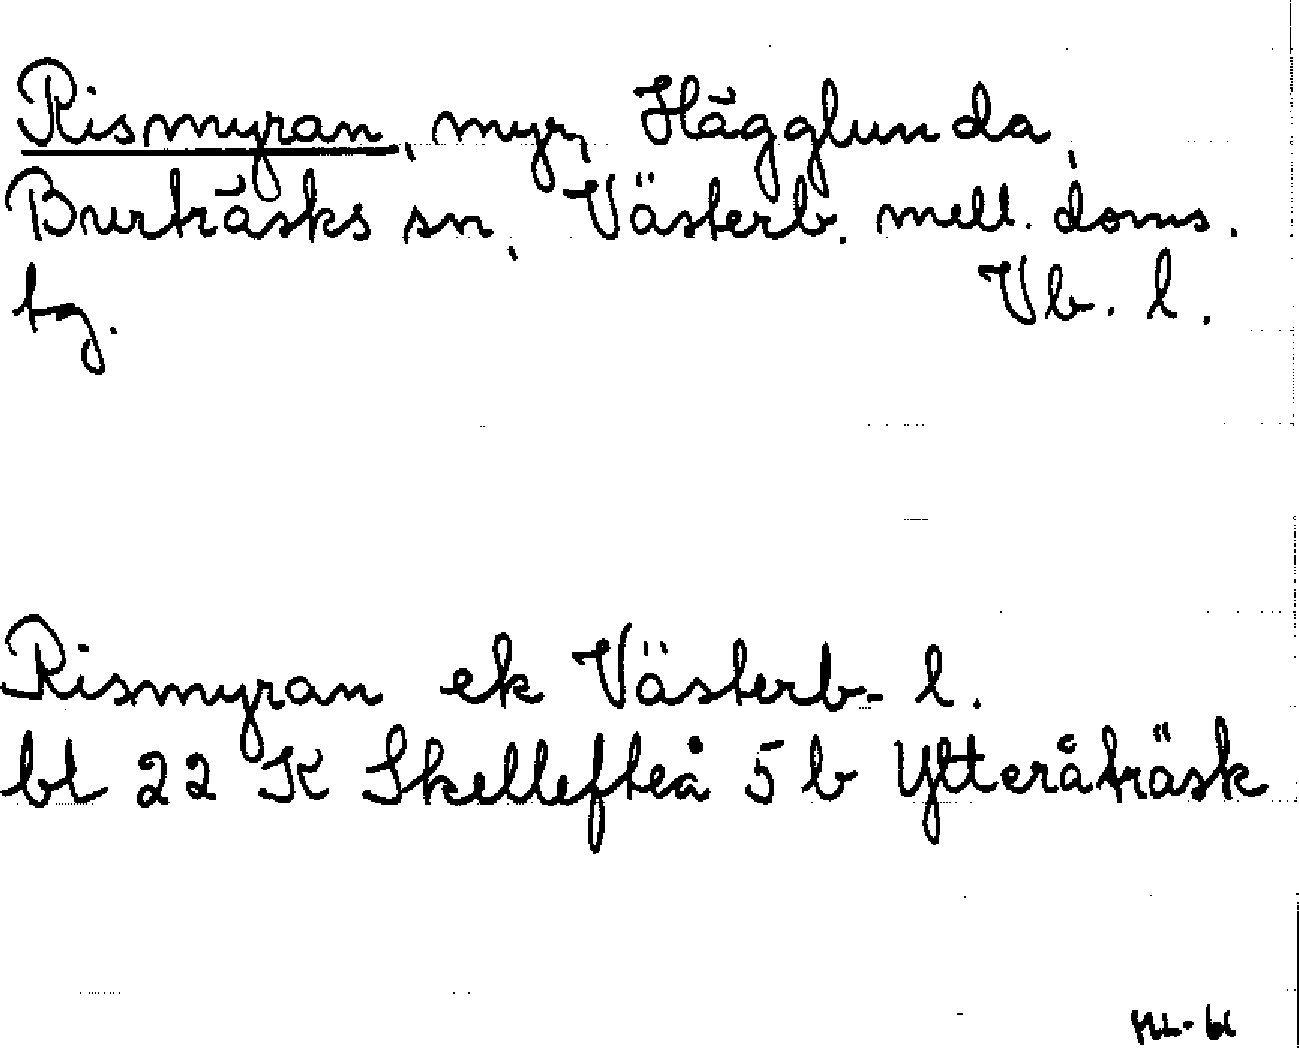 Rismyran, myr, Hägglunda,
Burträsks sn, Västerb. mell. doms.
tg. Vb. l.
Rismyran ek Västerb. l.
bl 22 K Skellefteå 5 b Ytteråträsk